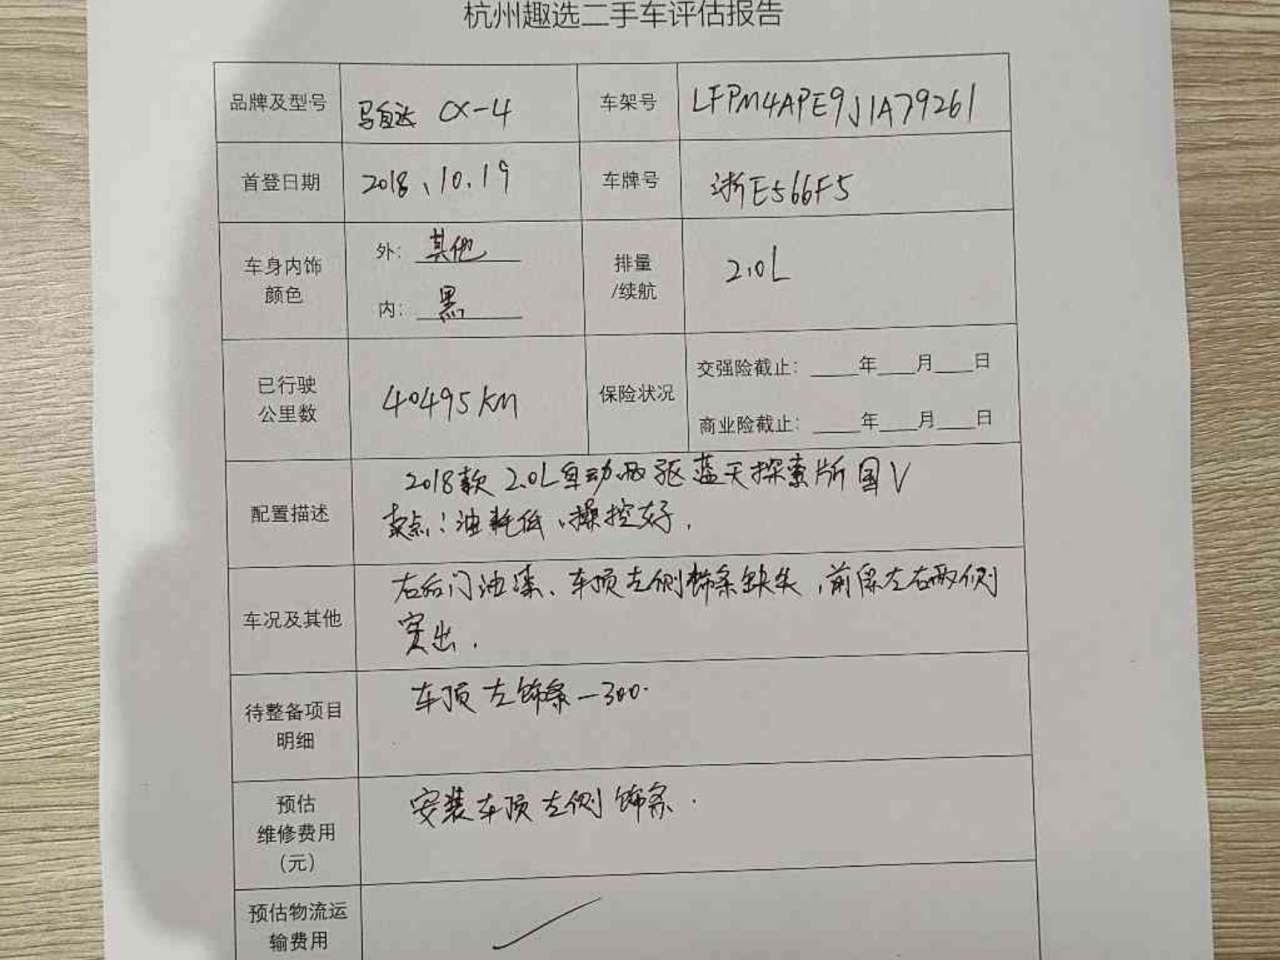 杭州趣选二手车评估报告
品牌及型号 马自达 CX-4 车架号 LFPM4APE9J1A79261
首登日期 2018、10.19 车牌号 浙E566F5
车身内饰
颜色
外: 其他
内: 黑
排量
/续航
2.0L
已行驶
公里数
40495KM
保险状况
交强险截止: 年 月 日
商业险截止: 年 月 日
配置描述
2018款 2.0L自动两驱蓝天探索版国V
卖点:油耗低、操控好.
车况及其他
右后门油漆、车顶左侧饰条缺失,前保左右两侧
突出.
待整备项目
明细
车顶左饰条—300.
预估
维修费用
(元)
安装车顶左侧饰条.
预估物流运
输费用